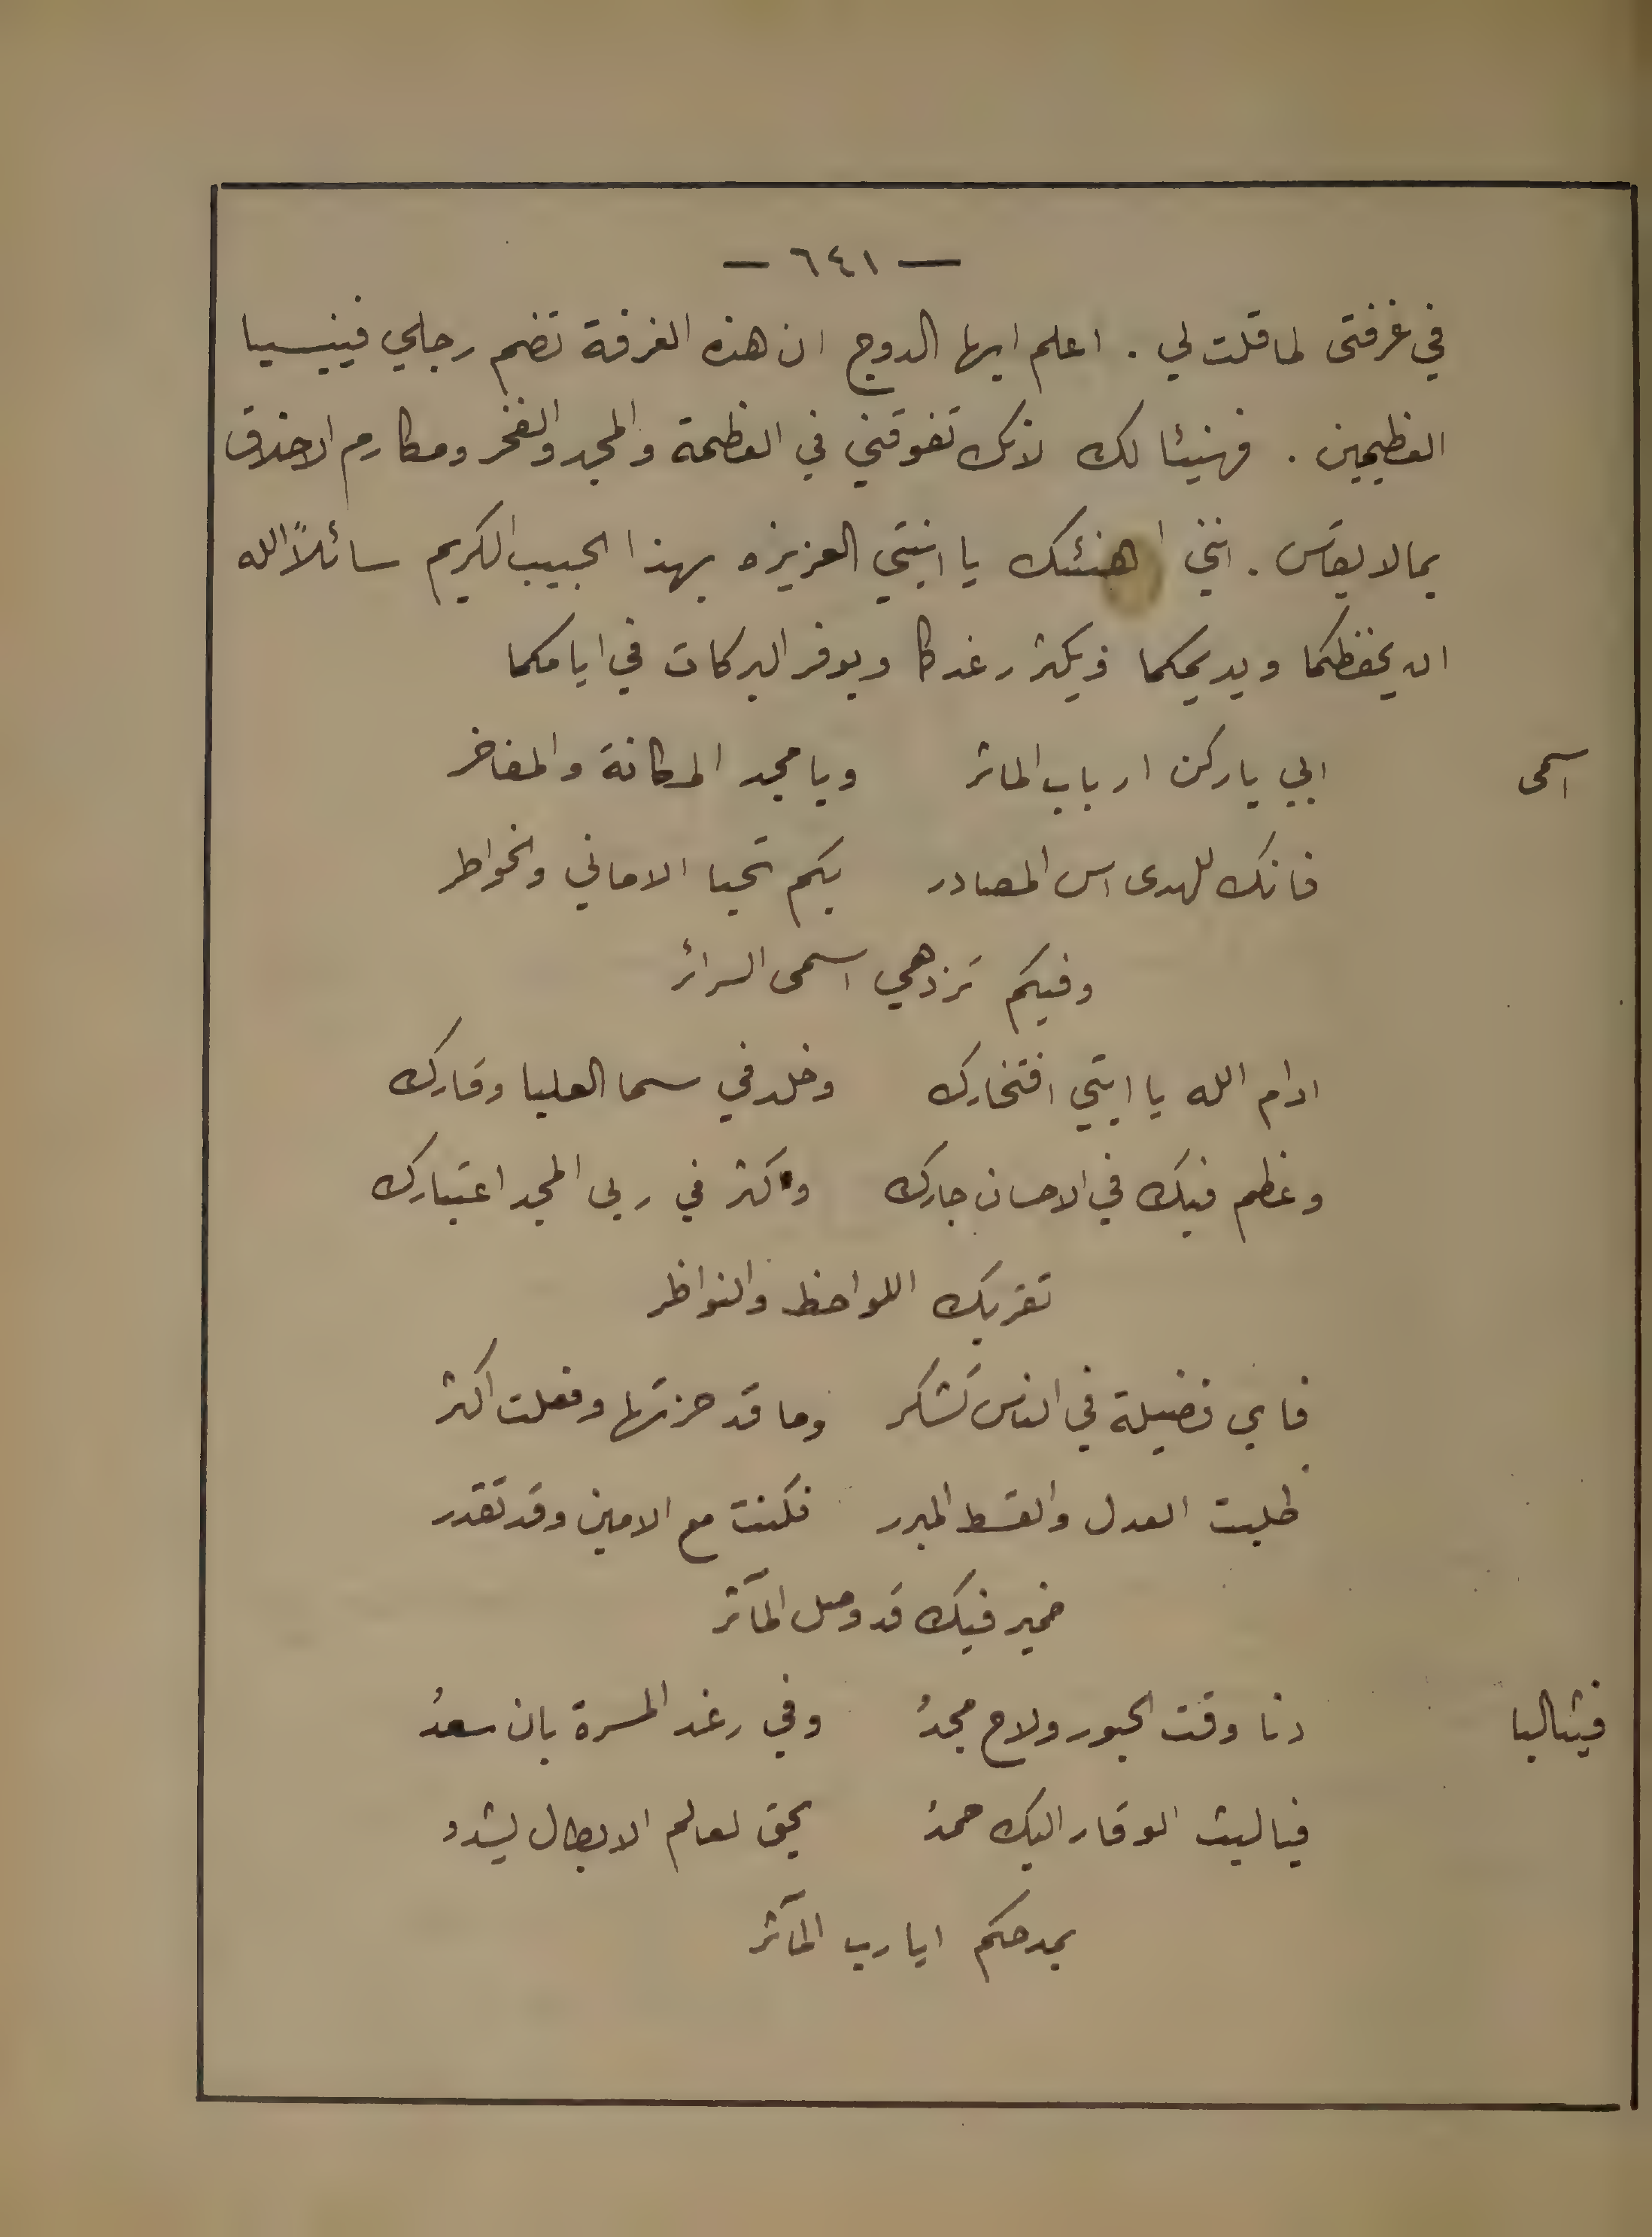 — ٦٤١ —
في غرفتى لما قلت لي . اعلم ايها الدوج ان هذه الغرفة تضم رجلي فينيسيا
العظيمين . فهنيئا لك لانك تفوقني في العظمة والمجد والفخر ومكارم الاخلاق
بما لا يقاس . انني اهنئك يا ابنتي العزيزه بهذا الحبيب الكريم سائلاً الله
ان يحفظكما ويديمكما ويكثر رغدكما ويوفر البركات في ايامكما
اسمى ابي يا ركن ارباب الماثر ويا مجد المكانة والمفاخر
فانك للهدى اس المصادر بكم تحيا الاماني والخواطر
وفيكم تزدهي اسمى السرائر
ادام الله يا ابتي افتخارك وخلد في سما العليا وقارك
وعظم فيك في الاحسان جارك وكثر في ربى المجد اعتبارك
تقر بك اللواحظ والنواظر
فاي فضيلة في الناس تشكر وما قد حزتها وفعلت اكثر
طلبت العدل والقسط المبرر فكنت مع الامين وقد تقدر
ضمير فيك قد وصل المآثر
فيتاليا دنا وقت الحبور ولاح مجدُ وفي رغد المسرة بان سعدُ
فيا ليث الوقار اليك حمدُ يحق لعالم الابطال يشدو
بمدحكم ايا رب المآثر